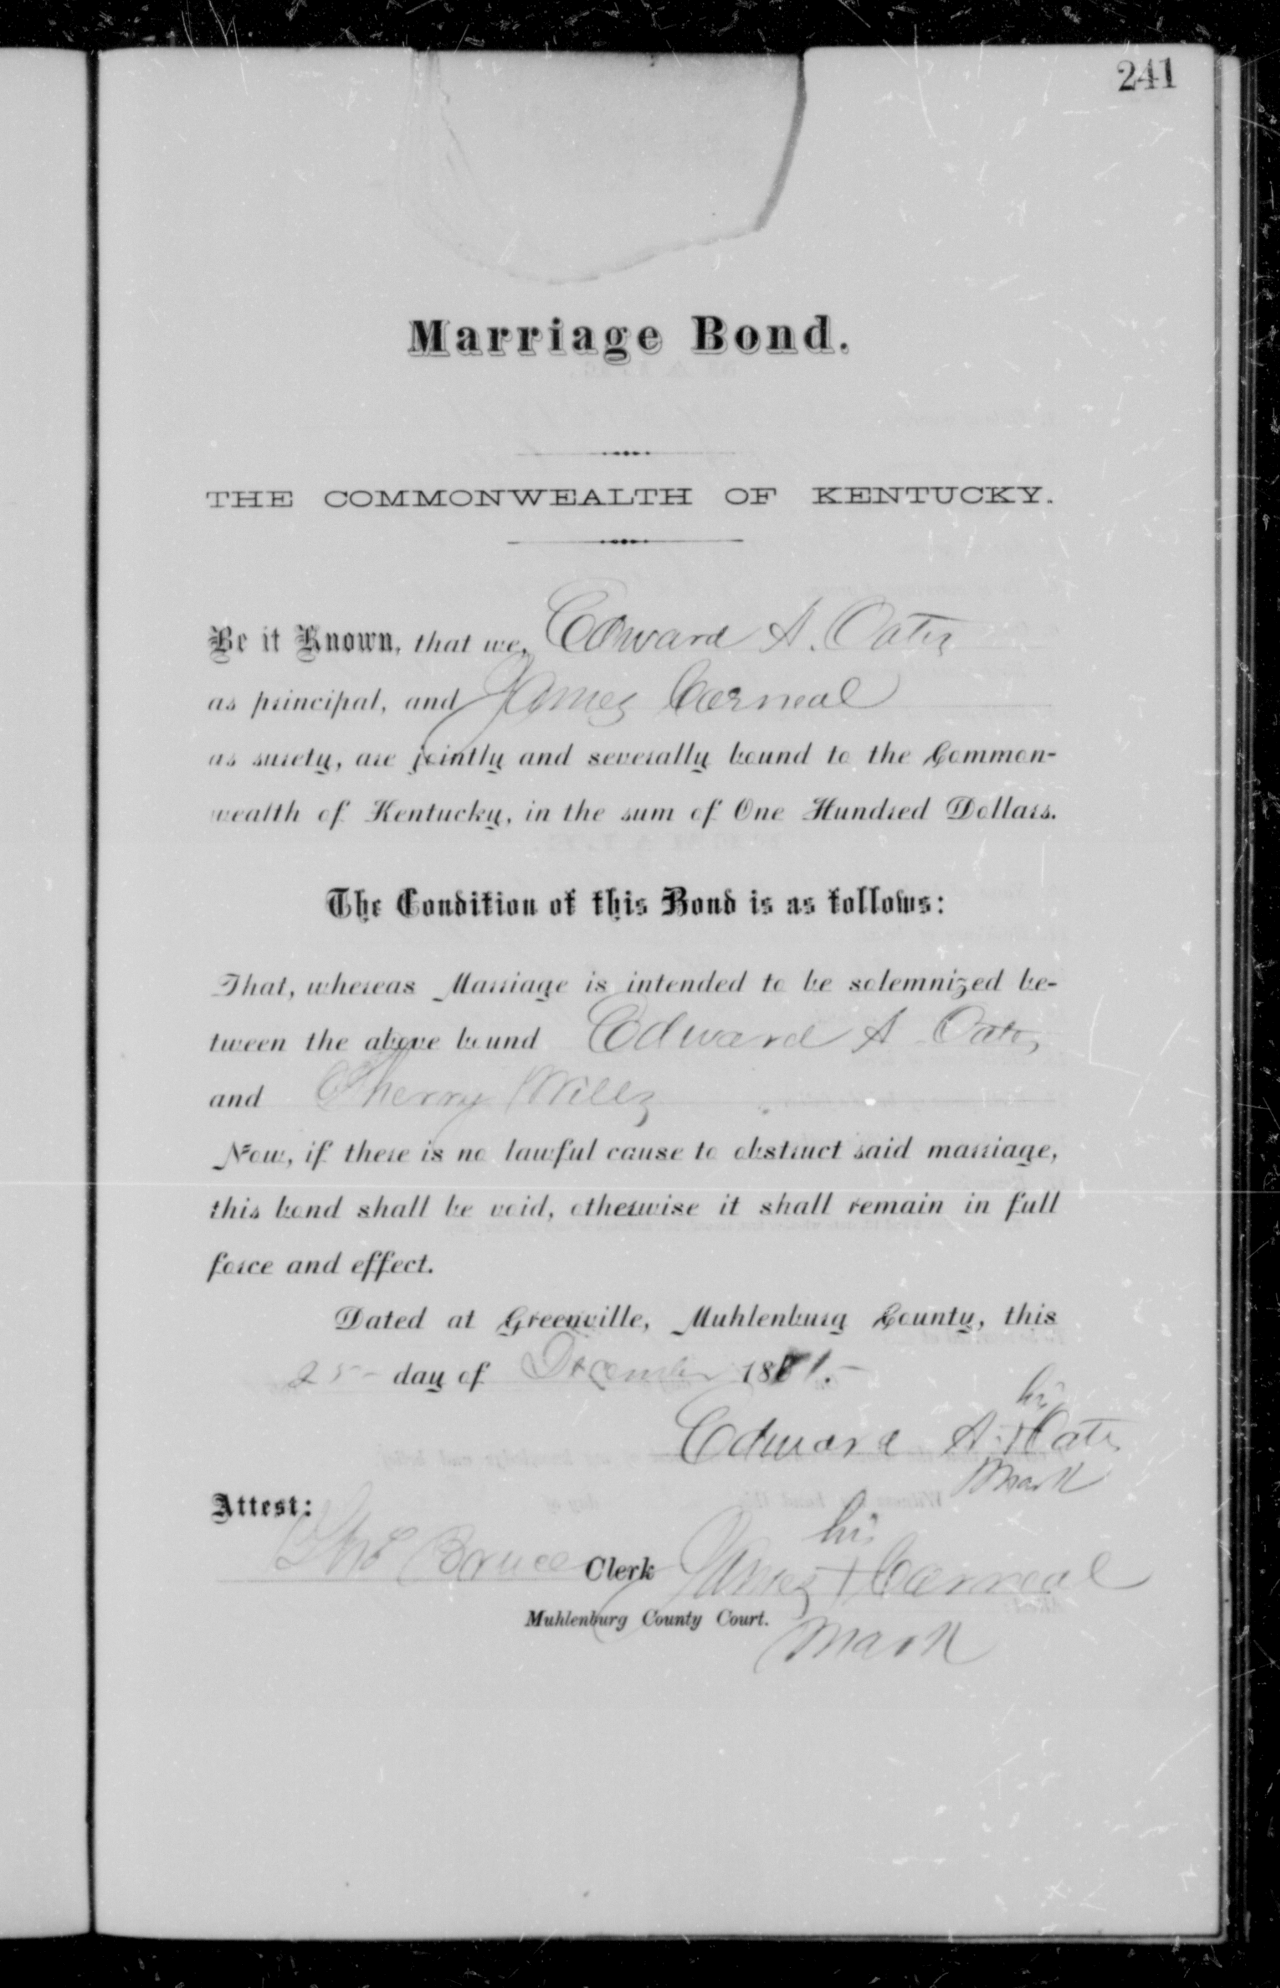 241
Marriage Bond.
THE COMMONWEALTH OF KENTUCKY.
Be it Known, that we, Edward A. Oates
as principal, and James Carneal
as surety, are jointly and severally bound to the Common-
wealth of Kentucky, in the sum of One Hundred Dollars.
The Condition of this Bond is as follows:
That, whereas Marriage is intended to be solemnized be-
tween the above bound Edward A Oates
and Wills
Now, if there is no lawful cause to obstruct said marriage,
this bond shall be void, otherwise it shall remain in full
force and effect.
Dated at Greenville, Muhlenburg County, this
25- day of December 1881.-
his
Edward A. + Oates
mark
Attest:
his
Thos Bruce Clerk James + Carneal
Muhlenburg County Court.
mark